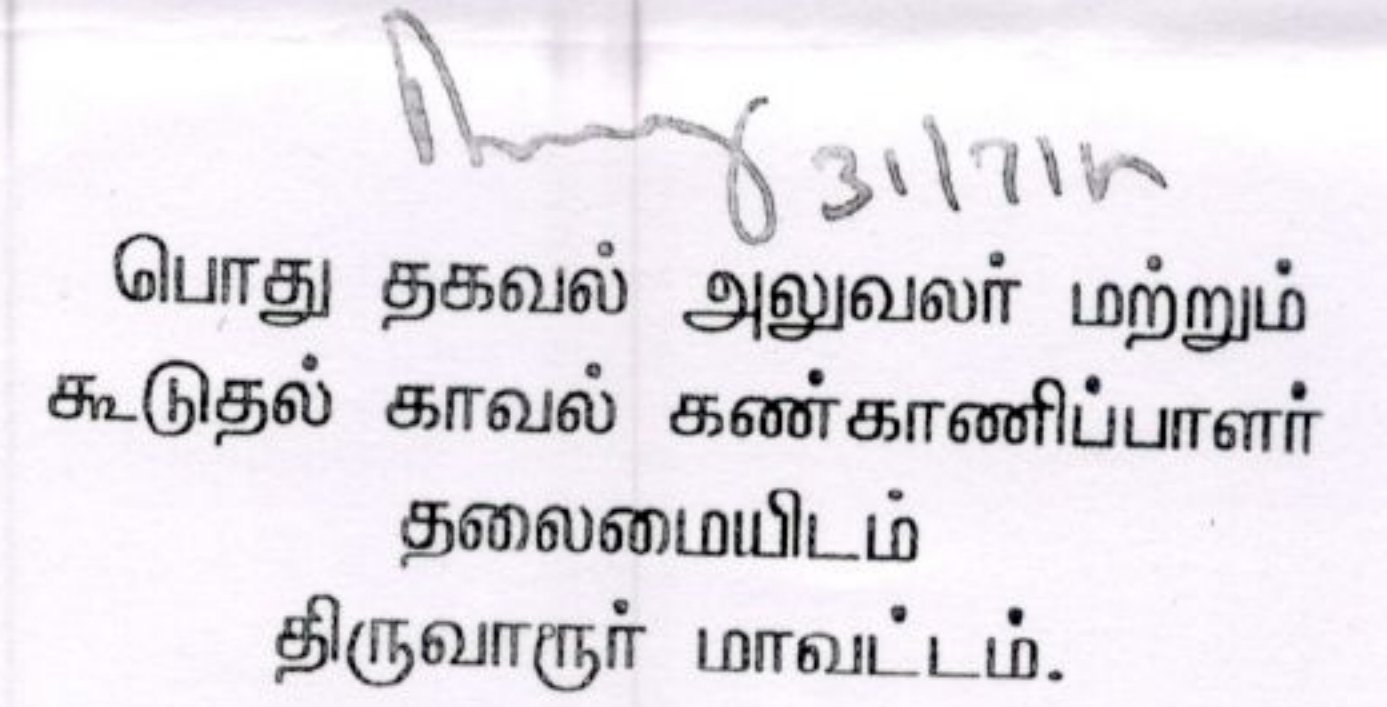 31/7/1
பொது தகவல் அலுவலர் மற்றும்
கூடுதல் காவல் கண்காணிப்பாளர்
தலைமையிடம்
திருவாரூர் மாவட்டம்.